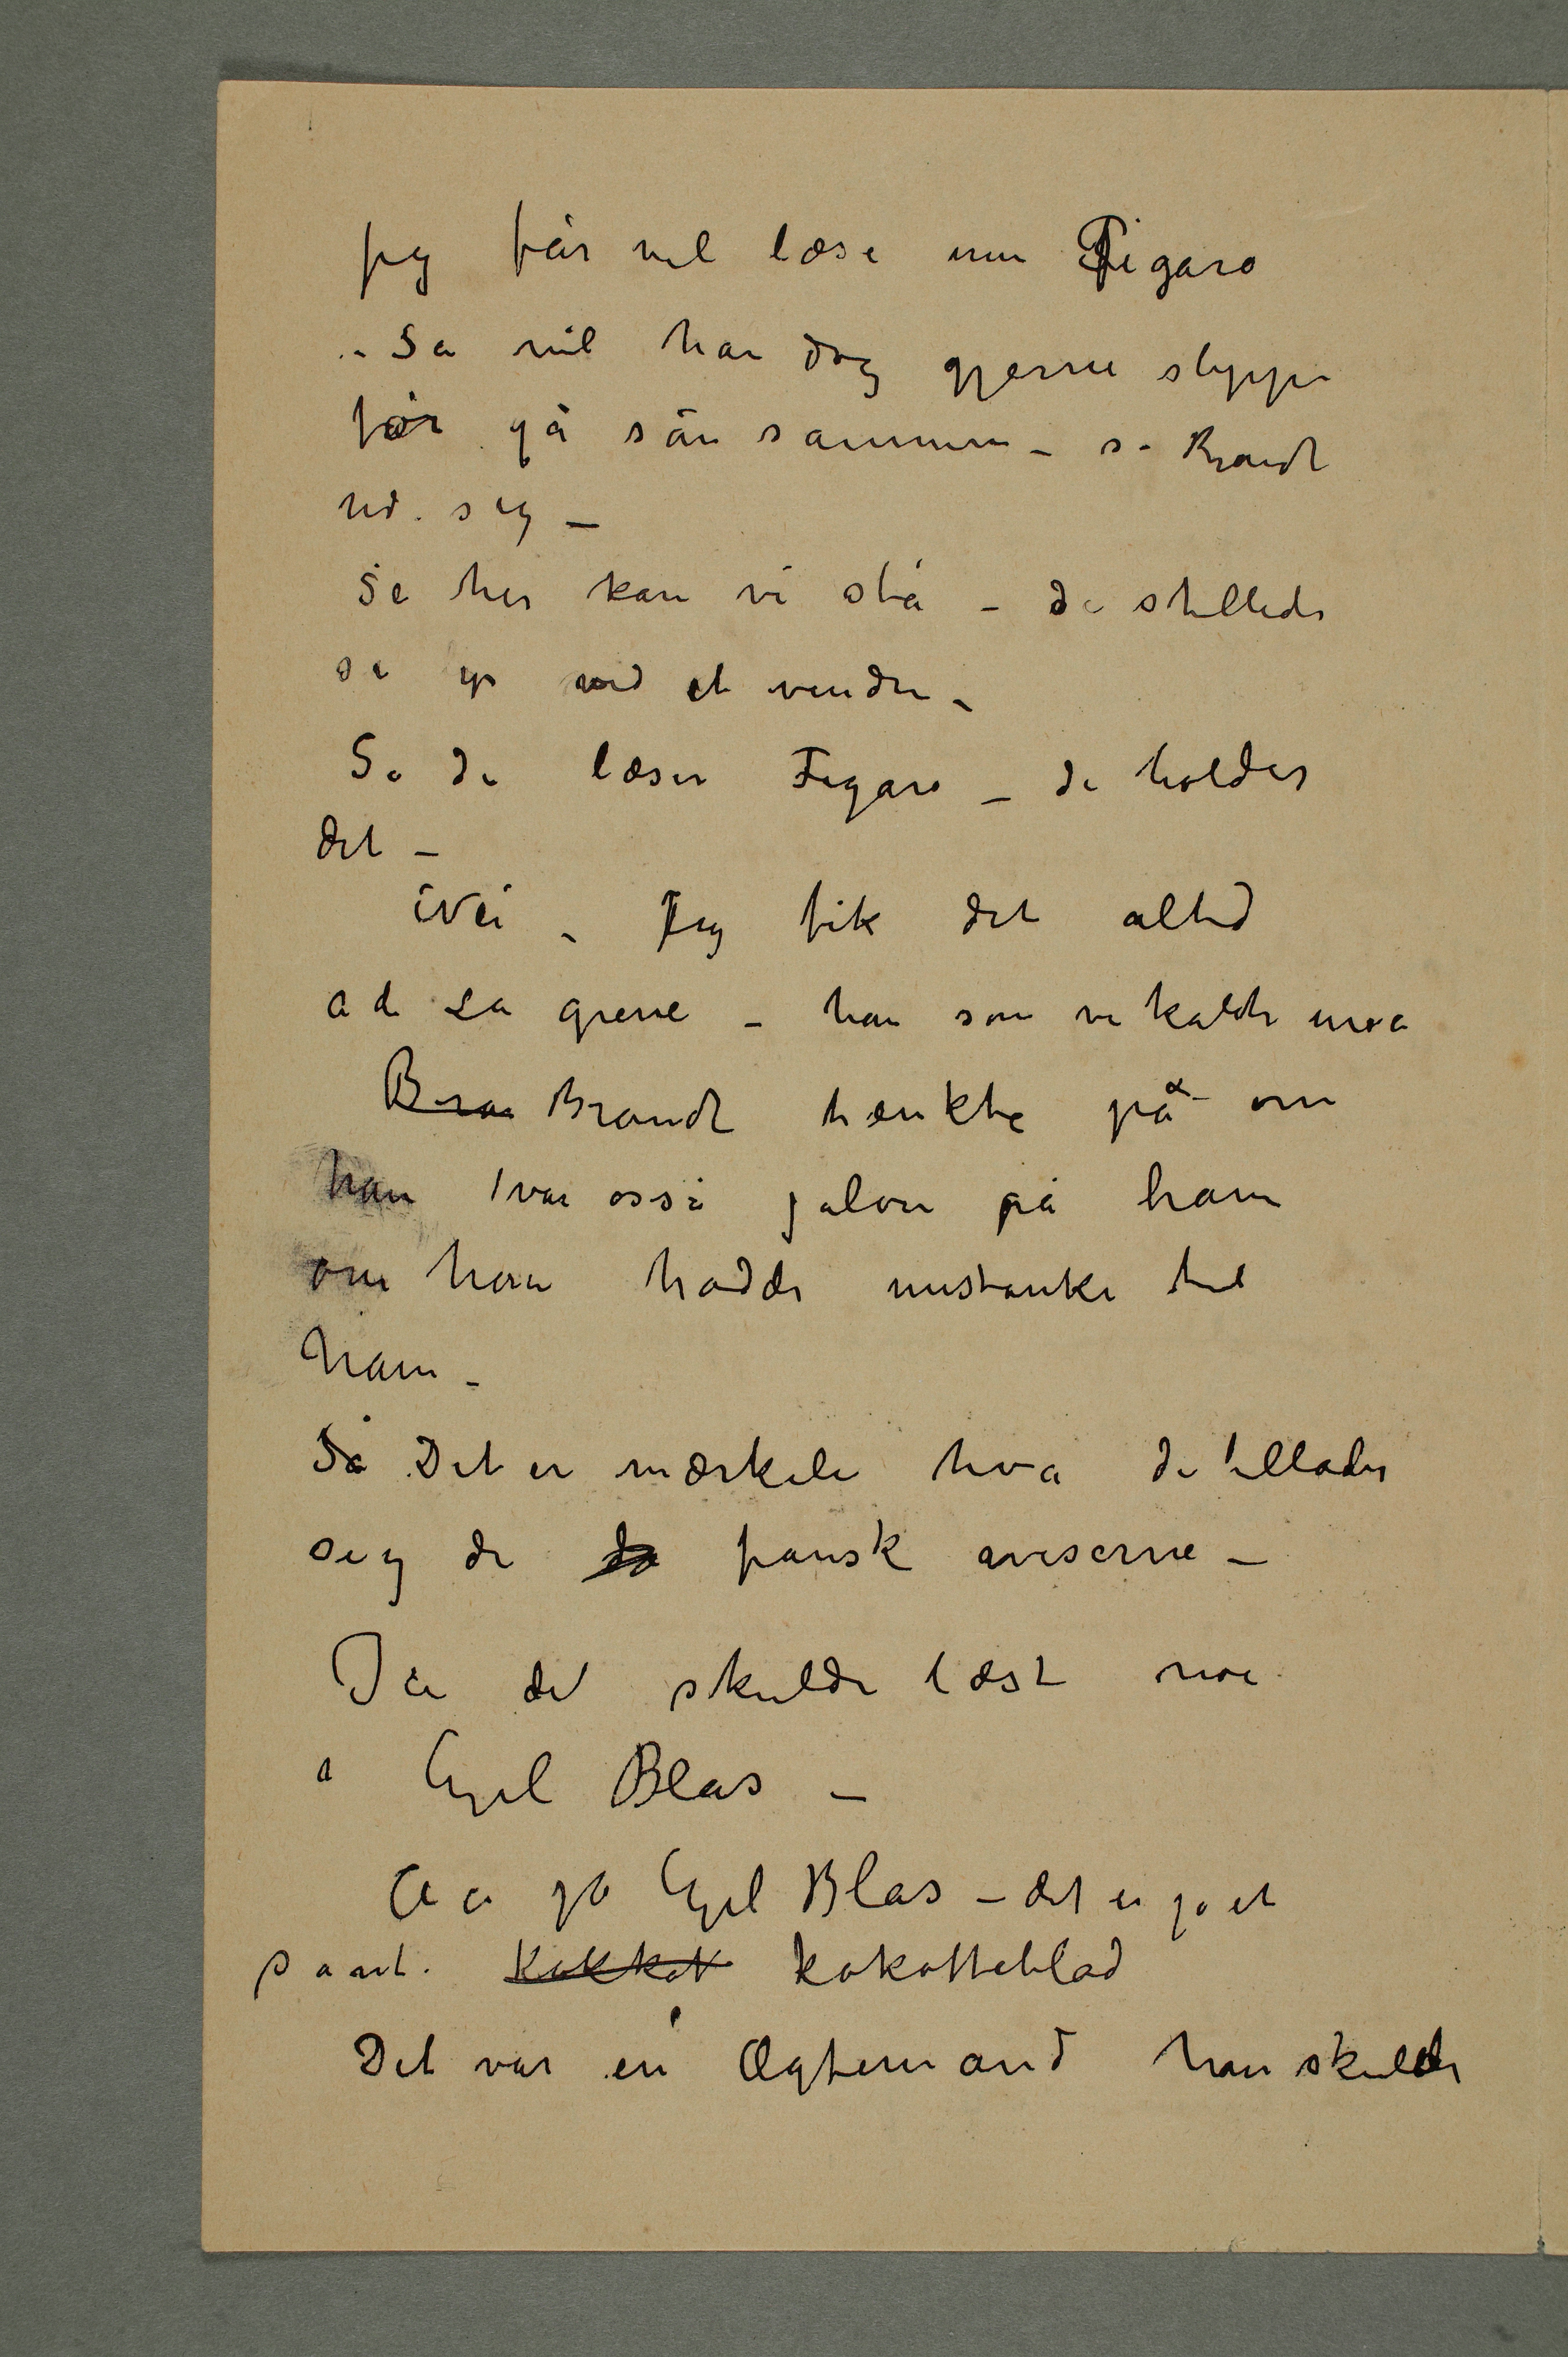 Jeg får vel læse min Figaro
– Så vil han dog gjerne slippe
for gå sån sammen – sa Brandt
ved sig –
Se her kan vi stå – de stillede
se op ved et vindu –
Så De læser Figaro – De holder
det –
Nei – Jeg fik det altid
a de La grene – han som vi kaldte
Bra Brandt tænkte på om
han var osså jaloux på ham
om han hadde mistanke til
ham –
Så Det er mærkeli hva de tillader
seg de da fransk aviserne –
Ja de skulde læst noe
i Gil Blas –
Aa ja Gil Blas – det er jo et
sant. Kokkot kokotteblad
Det var en Ægtemand han skulde